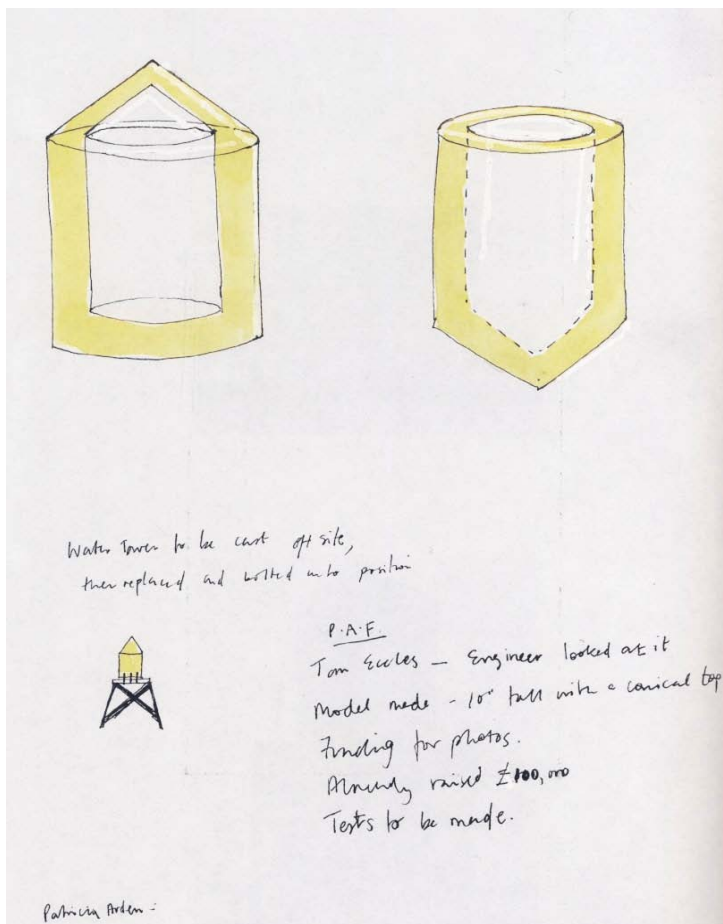 Water Tower to be cast off site,
then replaced and bolted into position
P.A.F.
Tom Eccles – Engineer looked at it
Model made - 10" tall with a conical top
Funding for photos.
Already raised £100,000
Tests to be made.
Patricia Arden -